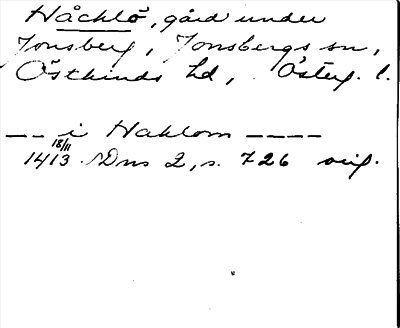 Håcklö, gård under
Jonsberg, Jonsbergs sn,
Östkinds hd, Österg. l.
-- i Haklom ----
1413 18/11 SDns 2, s. 726 orig.